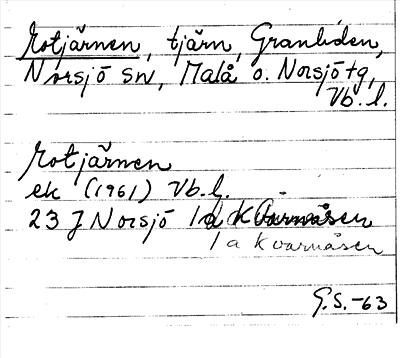 Rotjärnen, tjärn, Granliden,
Norsjö sn, Malå o. Norsjö tg,
Vb. l.
Rotjärnen
ek (1961) Vb. l.
23 J Norsjö 1 a Kvarnåsen
1 a Kvarnåsen
G.S.-63